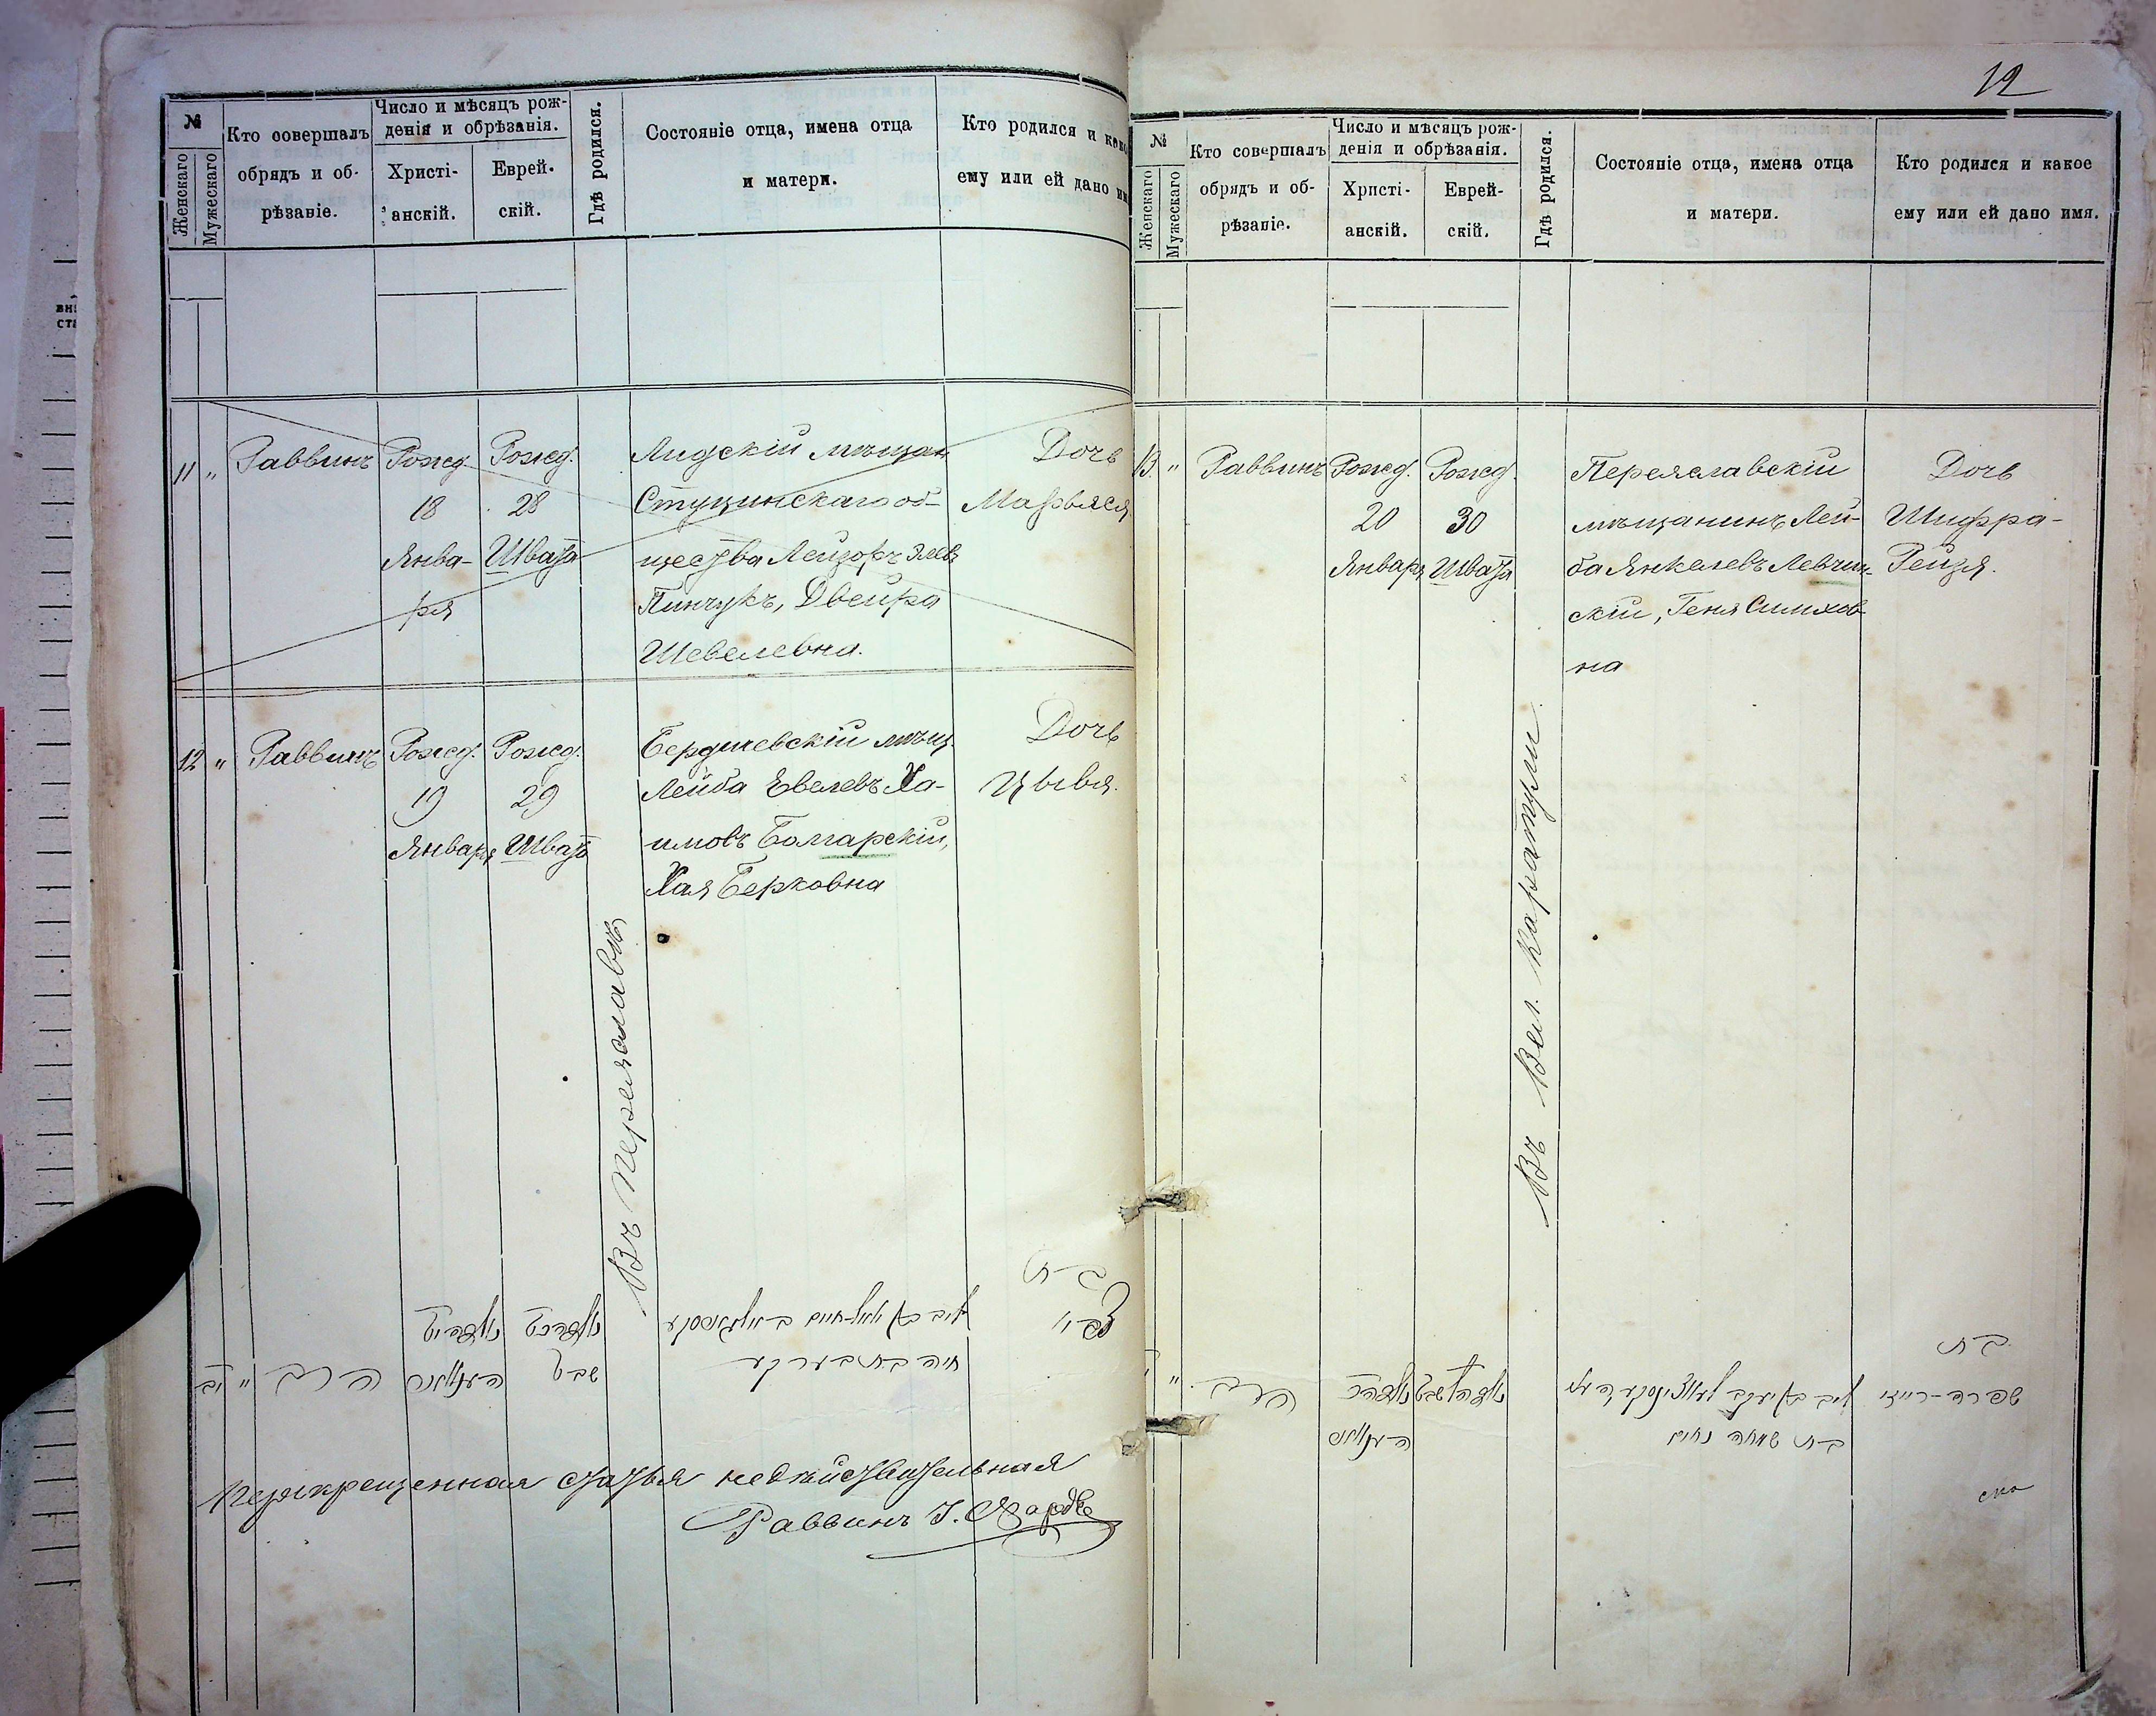 №
Женскаго
Мужескаго
Кто совершалъ
обрядъ и об-
рѣзаніе.
Число и мѣсяцъ рож-
денія и обрѣзанія.
Христі-
анскій.
Еврей-
скій.
Гдѣ родился.
Состояніе отца, имена отца
и матери.
Кто родился и како
ему или ей дано им
11 " Раввинъ
Рожд.
18
Янва-
ря
Рожд.
28
Швата
Лидскій мѣщан
Стучинскаго об-
щества Лейзоръ
Пинчукъ, Двейра
Шевелевна.
Дочь
Марьяся
12 " Раввинъ
Рожд.
19
Января
Рожд.
29
Швата
Въ Переяславѣ
Бердичевскій мѣщ.
Лейба Евелевъ Ха-
имовъ Болгарскій,
Хая Берковна
Дочь
Цывя.
בת
צביי
חיה בת בערקע
שבט
יב " הרב
Перекрещенная статья недѣйствительная
Раввинъ І.
12
№
Женскаго
Мужескаго
Кто совершалъ
обрядъ и об-
рѣзаніе.
Число и мѣсяцъ рож-
денія и обрѣзанія.
Христі-
анскій.
Еврей-
скій.
Гдѣ родился.
Состояніе отца, имена отца
и матери.
Кто родился и какое
ему или ей дано имя.
13. " Раввинъ
Рожд.
20
Января
Рожд.
30
Швата
Въ Вел. Каратули
Переяславскій
мѣщанинъ Лей-
ба Янкелевъ Левчин-
скій, Геня Симхов-
на
Дочь
Шифра-
Рейзя.
בת
שפרה-רייזי
בת שמחה נחום
הרב